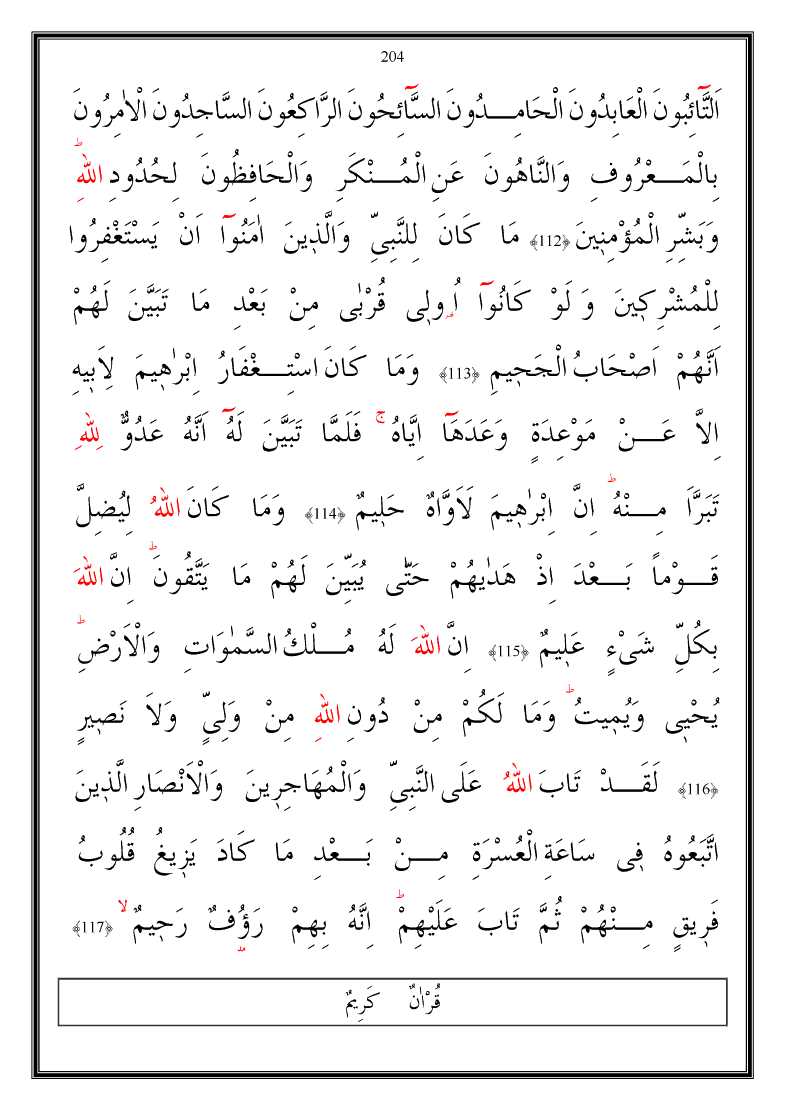 204
اَلتَّٓائِبُونَ الْعَابِدُونَ الْحَامِـــدُونَ السَّٓائِحُونَ الرَّاكِعُونَ السَّاجِدُونَ الْاٰمِرُونَ
بِالْمَـــعْرُوفِ وَالنَّاهُونَ عَنِ الْمُـــنْكَرِ وَالْحَافِظُونَ لِحُدُودِ اللّٰهِۜ
وَبَشِّرِ الْمُؤْمِن۪ينَ ﴿112﴾ مَا كَانَ لِلنَّبِيِّ وَالَّذ۪ينَ اٰمَنُٓوا اَنْ يَسْتَغْفِرُوا
لِلْمُشْرِك۪ينَ وَ لَوْ كَانُٓوا اُو۬ل۪ى قُرْبٰى مِنْ بَعْدِ مَا تَبَيَّنَ لَهُمْ
اَنَّهُمْ اَصْحَابُ الْجَح۪يمِ ﴿113﴾ وَمَا كَانَ اسْتِـــغْفَارُ اِبْرٰه۪يمَ لِاَب۪يهِ
اِلاَّ عَـــنْ مَوْعِدَةٍ وَعَدَهَٓا اِيَّاهُۚ فَلَمَّا تَبَيَّنَ لَهُٓ اَنَّهُ عَدُوٌّ لِلّٰهِ
تَبَرَّاَ مِـــنْهُۜ اِنَّ اِبْرٰه۪يمَ لَاَوَّاهٌ حَل۪يمٌ ﴿114﴾ وَمَا كَانَ اللّٰهُ لِيُضِلَّ
قَـــوْماً بَـــعْدَ اِذْ هَدٰيهُمْ حَتّٰى يُبَيِّنَ لَهُمْ مَا يَتَّقُونَۜ اِنَّ اللّٰهَ
بِكُلِّ شَىْءٍ عَل۪يمٌ ﴿115﴾ اِنَّ اللّٰهَ لَهُ مُـــلْكُ السَّمٰوَاتِ وَالْاَرْضِۜ
يُحْي۪ى وَيُم۪يتُۜ وَمَا لَكُمْ مِنْ دُونِ اللّٰهِ مِنْ وَلِىٍّ وَلاَ نَص۪يرٍ
﴿116﴾ لَقَـــدْ تَابَ اللّٰهُ عَلَى النَّبِىِّ وَالْمُهَاجِر۪ينَ وَالْاَنْصَارِ الَّذ۪ينَ
اتَّبَعُوهُ ف۪ى سَاعَةِ الْعُسْرَةِ مِـــنْ بَـــعْدِ مَا كَادَ يَز۪يغُ قُلُوبُ
فَر۪يقٍ مِـــنْهُمْ ثُمَّ تَابَ عَلَيْهِمْۜ اِنَّهُ بِهِمْ رَؤُ۫فٌ رَح۪يمٌۙ ﴿117﴾
قُرْاٰنٌ كَرِيمٌ